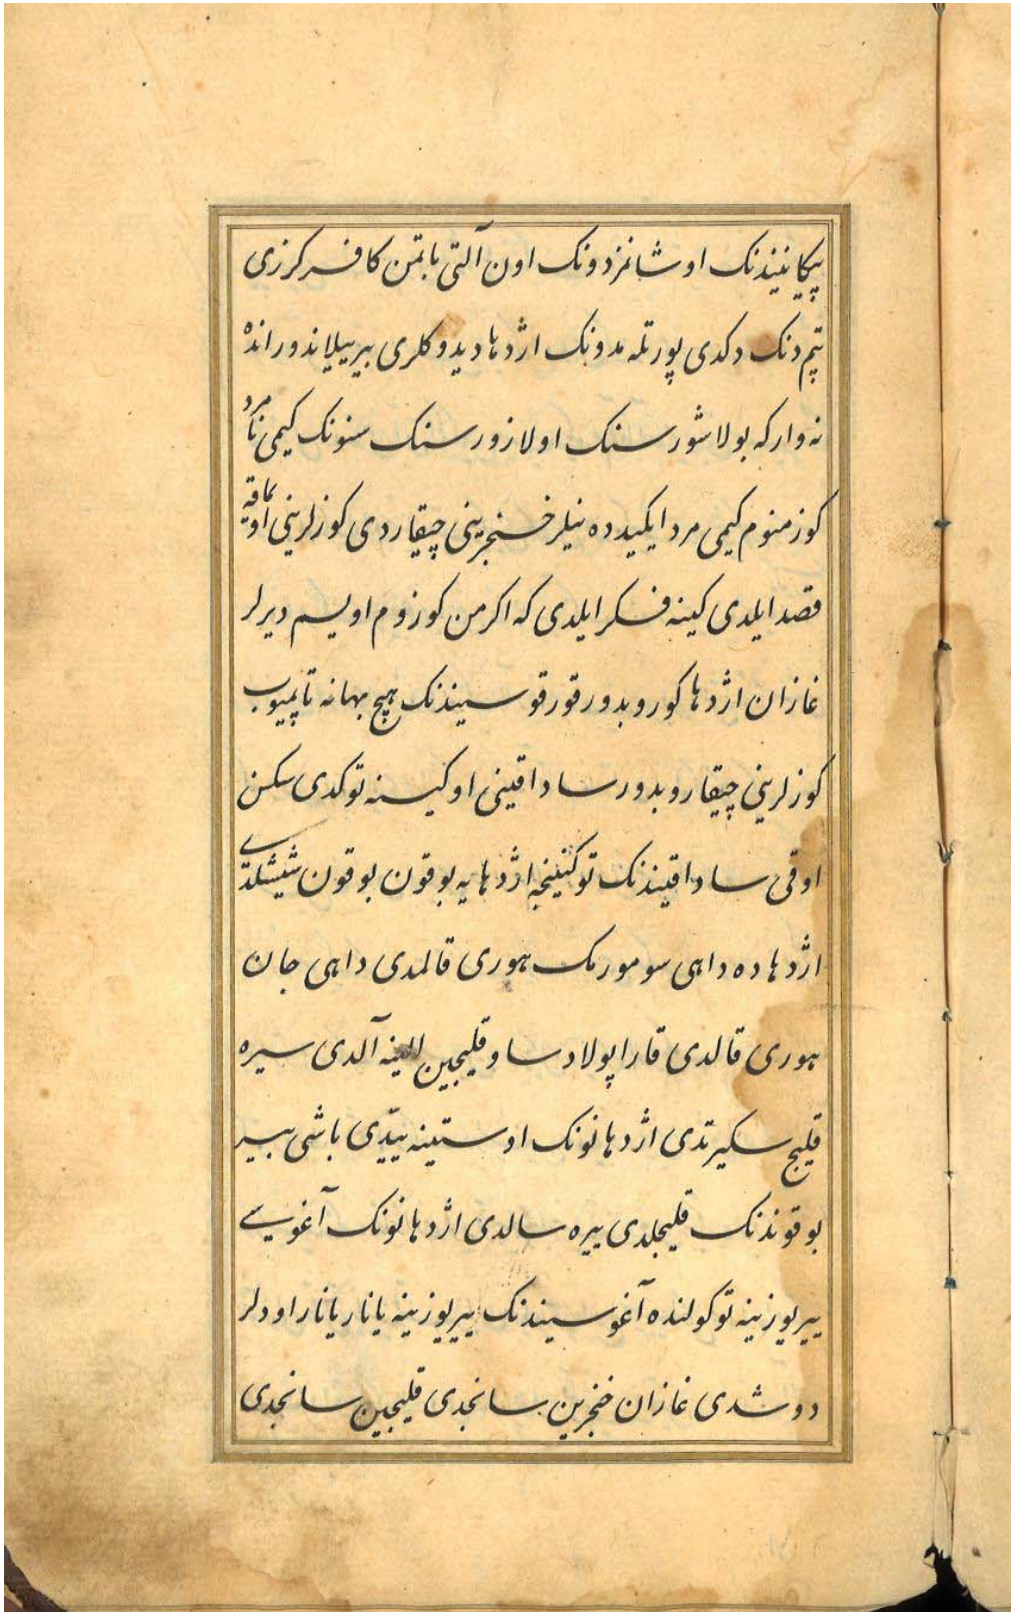 پیکانیندنک اوشانمزدونک اون آلتی باتمن کافر کرزی
تپمدنک دکدی پورتله مدونک اژدها دیدوکلری بیر ییلاندور انده
نه وار که بولاشورسنک اولازورسنک سنونک کیمی نامرد
کوز منوم کیمی مرد ایکیدده نیلر خنجرینی چیقاردی کوزلرینی اویماقه
قصد ایلدی کینه فکر ایلدی که اکر من کوزوم اویسم دیرلر
غازان اژدها کوروبدور قورقوسیندنک هیچ بهانه تاپمیوب
کوزلرینی چیقاروبدور ساداقینی اوکینه توکدی سکسن
اوقی ساداقیندنک توکنینجه اژدهایه بوقون بوقون شیشلدی
اژدهاده داهی سومورمک هوری قالمدی داهی جان
هوری قالدی قارا پولاد ساو قلیجین الینه آلدی سیره
قلیج سکیرتدی اژدهانونک اوستینه ییدی باشی بیر
بوقوندنک قلیجلدی ییره سالدی اژدهانونک آغوسی
ییر یوزینه توکولنده آغوسیندنک ییر یوزینه یانار یانار اودلر
دوشدی غازان خنجرین سانجدی قلیجین سانجدی